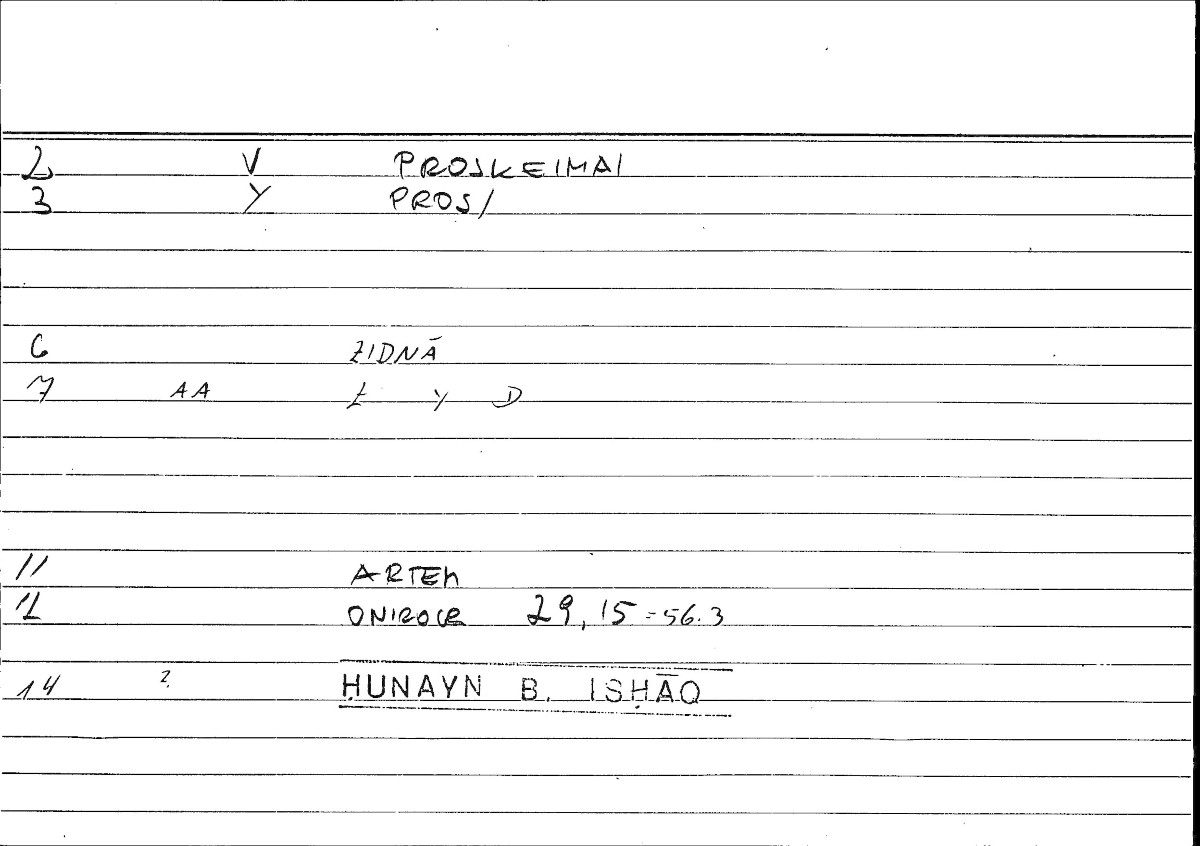 2 V PROSKEIMAI
3 Y PROS/
6 ZIDNĀ
7 AA Z Y D
11 ARTEM
12 ONIROCR 29,15 = 56.3
14 2. ḤUNAYN B. ISḤĀQ